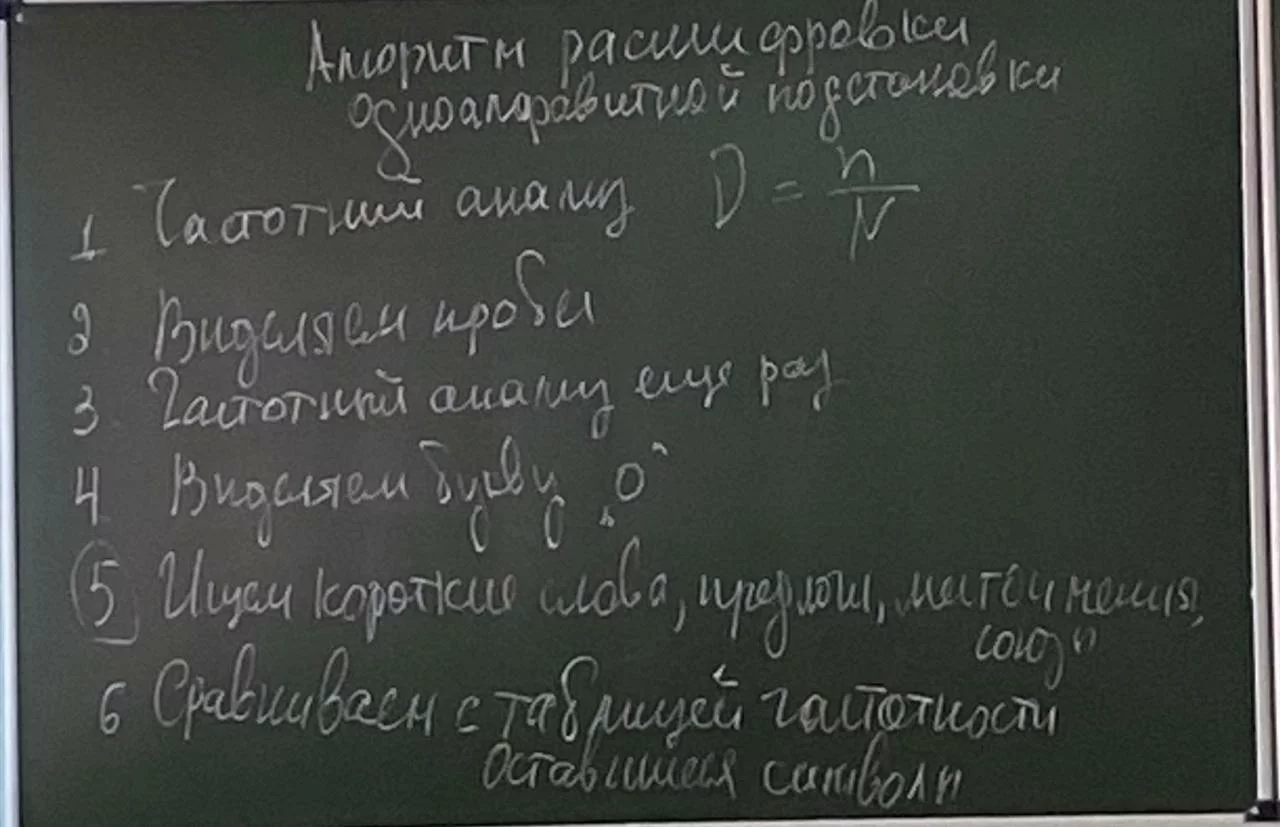 Алгоритм расшифровки
одноалфавитной подстановки
1 Частотный анализ D = n/N
2 Выделяем пробел
3 Частотный анализ еще раз
4 Выделяем букву „О“
5 Ищем короткие слова, предлоги, местоимения,
союзы
6 Сравниваем с таблицей частотности
оставшиеся символы